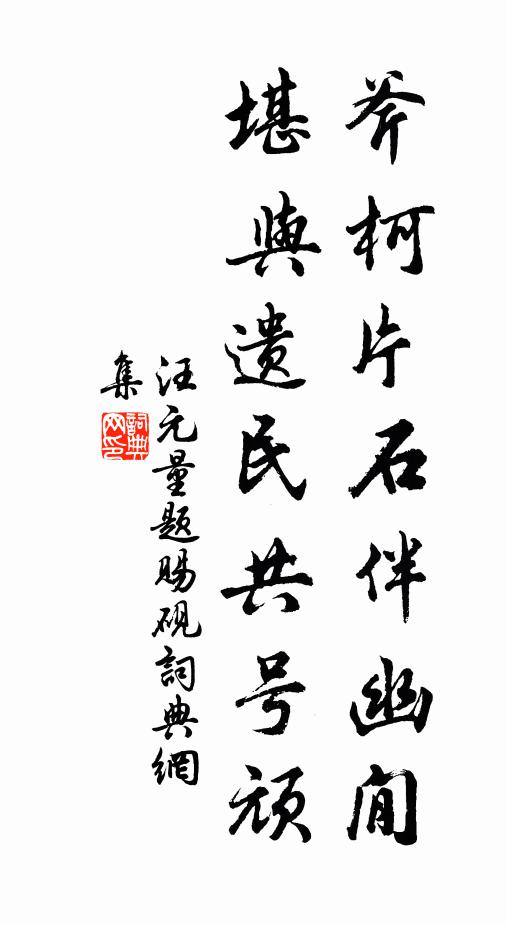 斧柯片石伴幽閒
堪與遺民共号頑
汪元量題賜硯詞典網
集
詞典网印